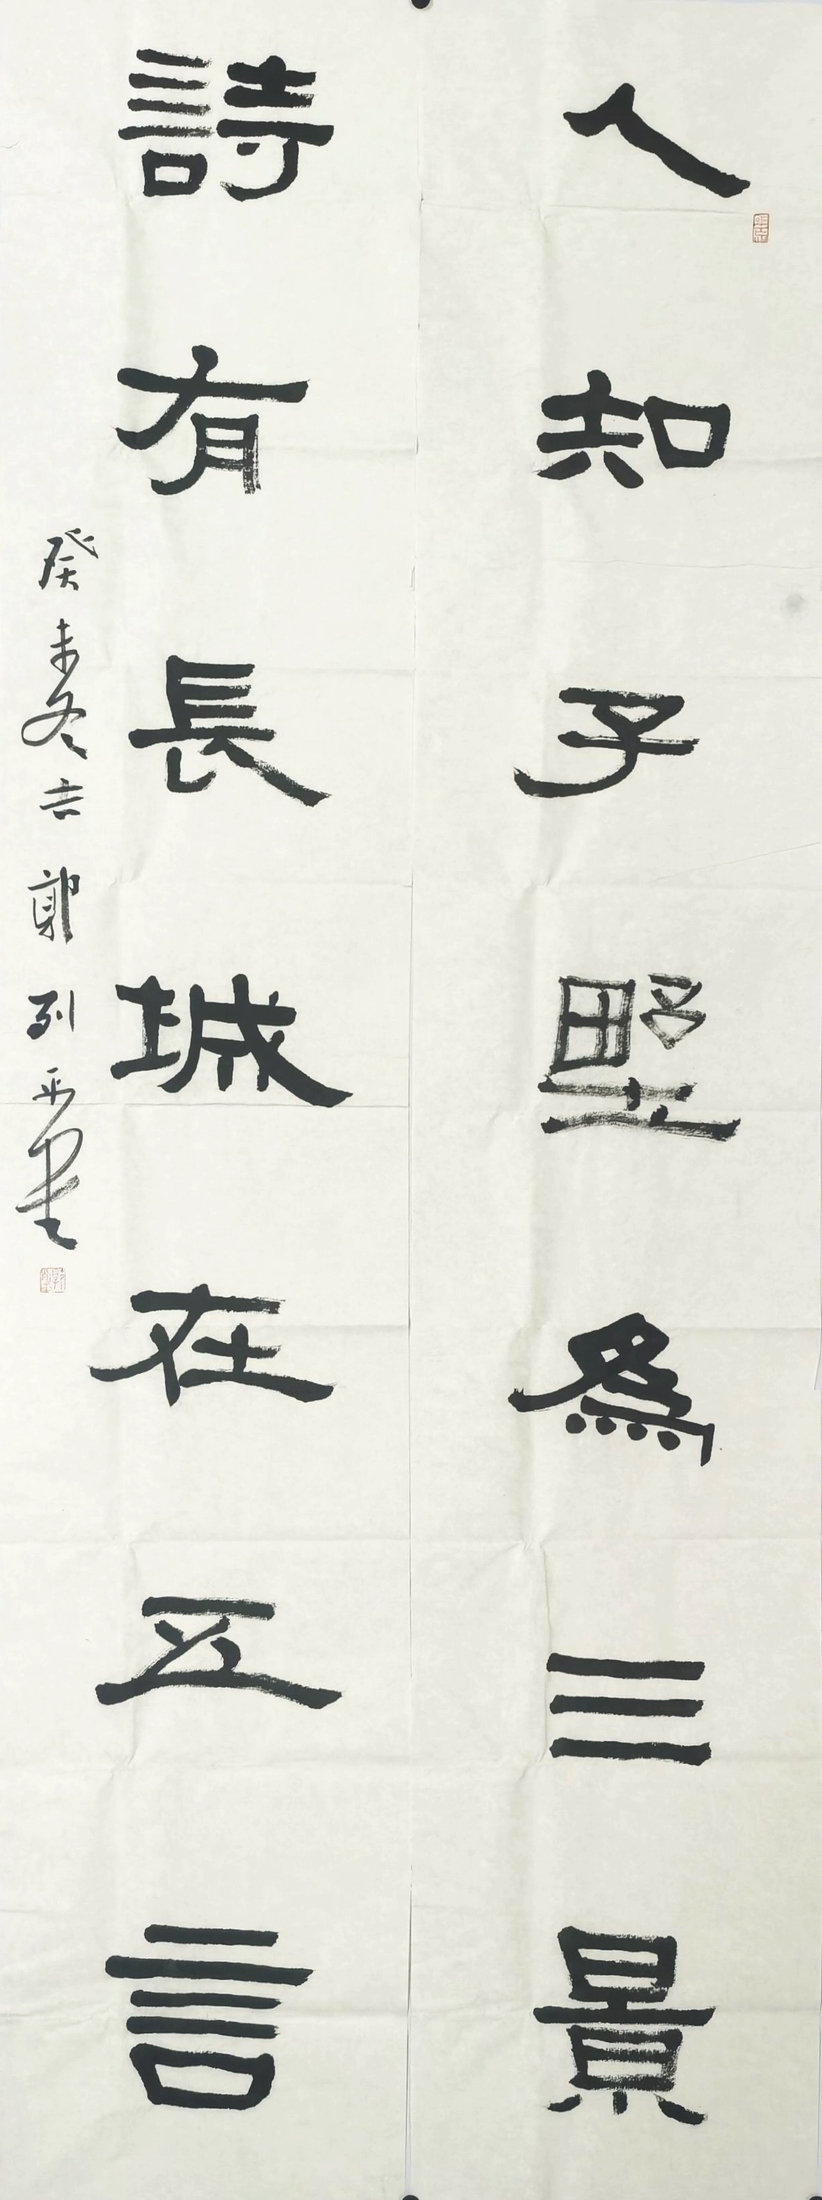 人知子野為三景
詩有長城在五言
癸未冬古鄭列平書